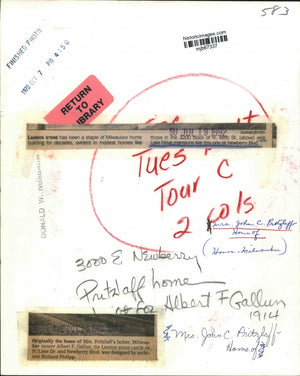 583
historicimages.com
mjb67337
FINISHED PHOTO
RETURN
TO
LIBRARY
LANNON STONE has been a staple of Milwaukee home
building for decades, evident in modest homes like
those in the 3200 block of N. 48th St. (above) and
Lake Drive mansions like this one at Newberry Blvd.
JUL 19 1992
Tues
Tour C
2 cols
DONALD W.
Mrs. John C. Pritzlaff
Home of
(Home - Milwaukee)
3000 E Newberry
Pritzlaff home
built for Albert F Gallun
1914
Originally the home of Mrs. Pritzlaff's father, Milwau-
kee tanner Albert F. Gallun, the Lannon stone castle at
N. Lake Dr. and Newberry Blvd. was designed by archi-
tect Richard Philipp.
Mrs. John C. Pritzlaff
Home of